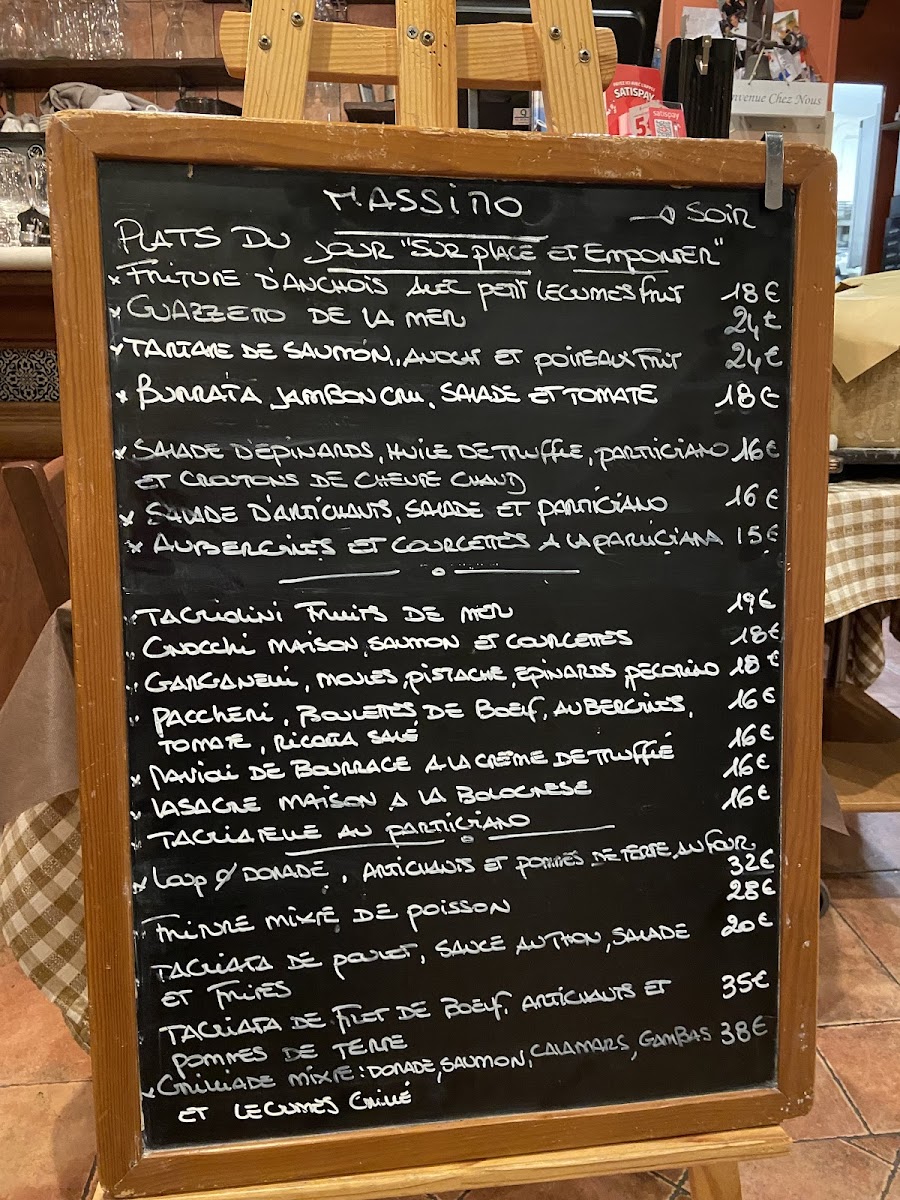 SATISPAY
satispay
Bienvenue Chez Nous
MASSIMO
SOIR
PLATS DU JOUR "SUR PLACE ET EMPORTER"
FRITURE D'ANCHOIS AVEC PETIT LEGUMES FRIT 18€
GUAZZETTO DE LA MER 24€
TARTARE DE SAUMON, AVOCAT ET POIREAUX FRIT 24€
BURRATA JAMBON CRU, SALADE ET TOMATE 18€
SALADE D'EPINARDS, HUILE DE TRUFFLE, PARTIGIANO 16€
ET CROUTONS DE CHEVRE CHAUD
SALADE D'ARTICHAUTS, SALADE ET PARTIGIANO 16€
AUBERGINES ET COURGETTES A LA PARMIGIANA 15€
TAGLIOLINI FRUITS DE MER 19€
GNOCCHI MAISON, SAUMON ET COURGETTES 18€
GARGANELLI, MOULES, PISTACHE, EPINARDS PECORINO 18€
PACCHERI, BOULETTES DE BOEUF, AUBERGINES, 16€
TOMATE, RICOTTA SALÉ
RAVIOLI DE BOURRACE A LA CRÈME DE TRUFFLE 16€
LASAGNE MAISON A LA BOLOGNESE 16€
TAGLIATELLE AU PARTIGIANO 16€
LOUP O/ DORADE, ARTICHAUTS ET POMMES DE TERRE AU FOUR 32€
FRITURE MIXTE DE POISSON 28€
TAGLIATA DE POULET, SAUCE AU THON, SALADE 20€
ET FRITES
TAGLIATA DE FILET DE BOEUF, ARTICHAUTS ET 35€
POMMES DE TERRE
GRILLIADE MIXTE: DORADE, SAUMON, CALAMARS, GAMBAS 38€
ET LEGUMES GRILLÉ